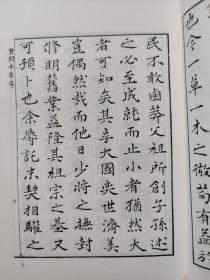 也今一草一木之微苟有益
民不敢鹵莽父祖所創子孫述
之必至成就而止小者猶然大
者可知矣其享大國奕世濟美
豈偶然哉而他日少將之撫封
修明舊業益隆其祖宗之基又
可預卜也余辱託末契相驩
質問本草序